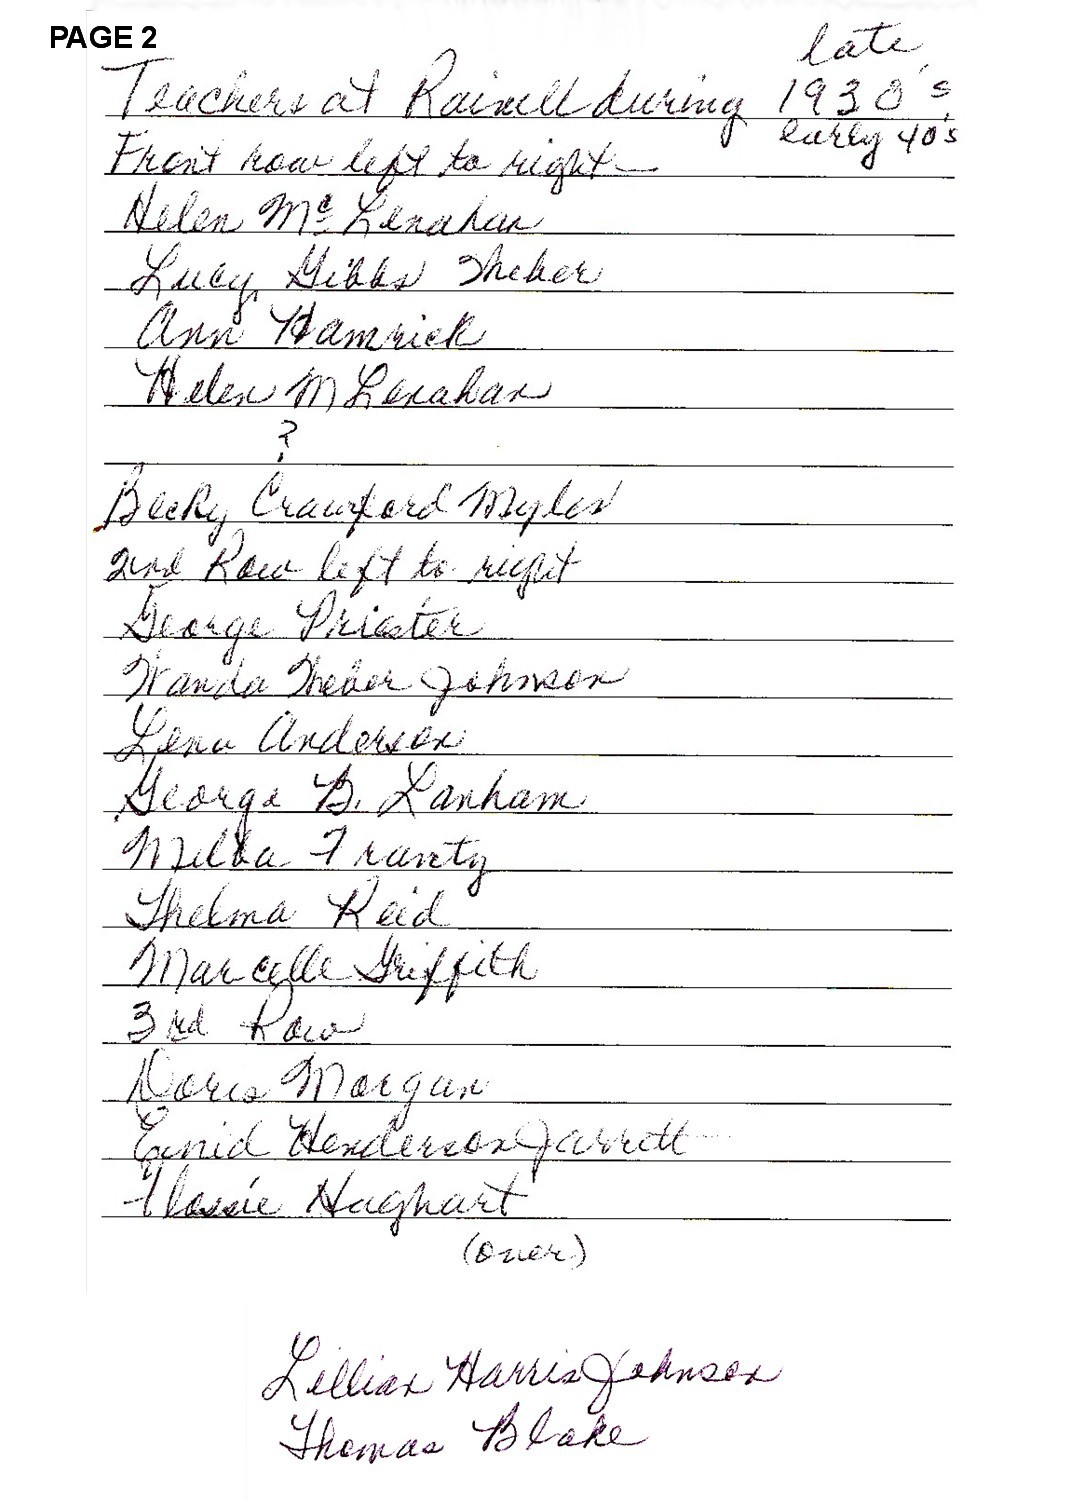 PAGE 2
late
Teachers at Rainell during 1930's
early 40's
Front row left to right
Helen Mc Lenahan
Lucy Gibbs Theber
Ann Hamrick
Helen M Lenahan
?
Becky Crawford Myles
2nd Row left to right
George Priester
Wanda Theber Johnson
Lena Anderson
George B. Lanham
Melba Frantz
Thelma Reid
Marcelle Griffith
3rd Row
Doris Morgan
Enid Henderson Jarrett
Flossie Haghart
(over)
Lillian Harris Johnson
Thomas Blake